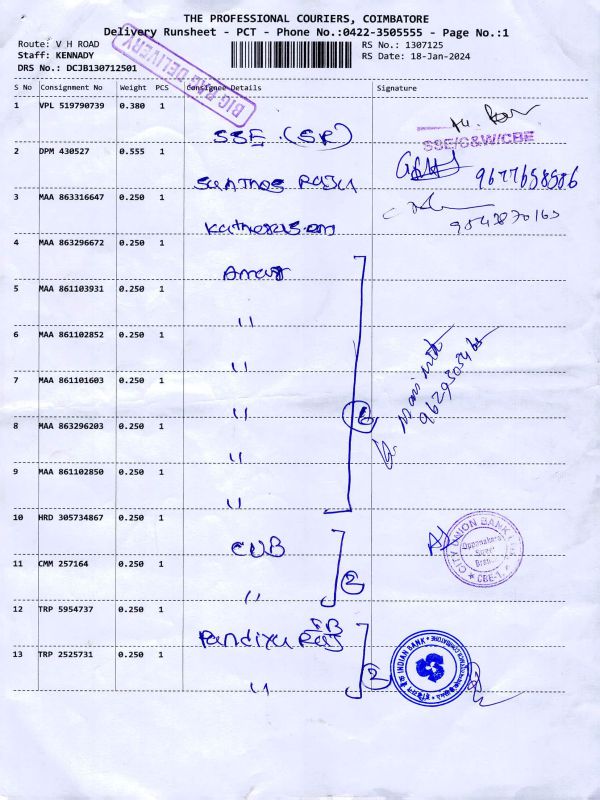 THE PROFESSIONAL COURIERS, COIMBATORE
Delivery Runsheet - PCT - Phone No.:0422-3505555 - Page No.:1
Route: V H ROAD
RS No.: 1307125
Staff: KENNADY
RS Date: 18-Jan-2024
DRS No.: DCJB130712501
BIG BAG DELIVERY
S No Consignment No Weight PCS Consignee Details Signature
1 VPL 519790739 0.380 1 SSE (SR)
SSE/C&W/CBE
2 DPM 430527 0.555 1 Santhos Raju 9677658586
3 MAA 863316647 0.250 1
4 MAA 863296672 0.250 1
5 MAA 861103931 0.250 1 "
6 MAA 861102852 0.250 1 "
7 MAA 861101603 0.250 1 "
6
8 MAA 863296203 0.250 1 "
9 MAA 861102850 0.250 1 "
10 HRD 305734867 0.250 1 CUB
CITY UNION BANK LTD
Oppanakara
Street
CBE-1
11 CMM 257164 0.250 1 "
2
12 TRP 5954737 0.250 1 Pandiya Raj
IB
INDIAN BANK
13 TRP 2525731 0.250 1 "
2